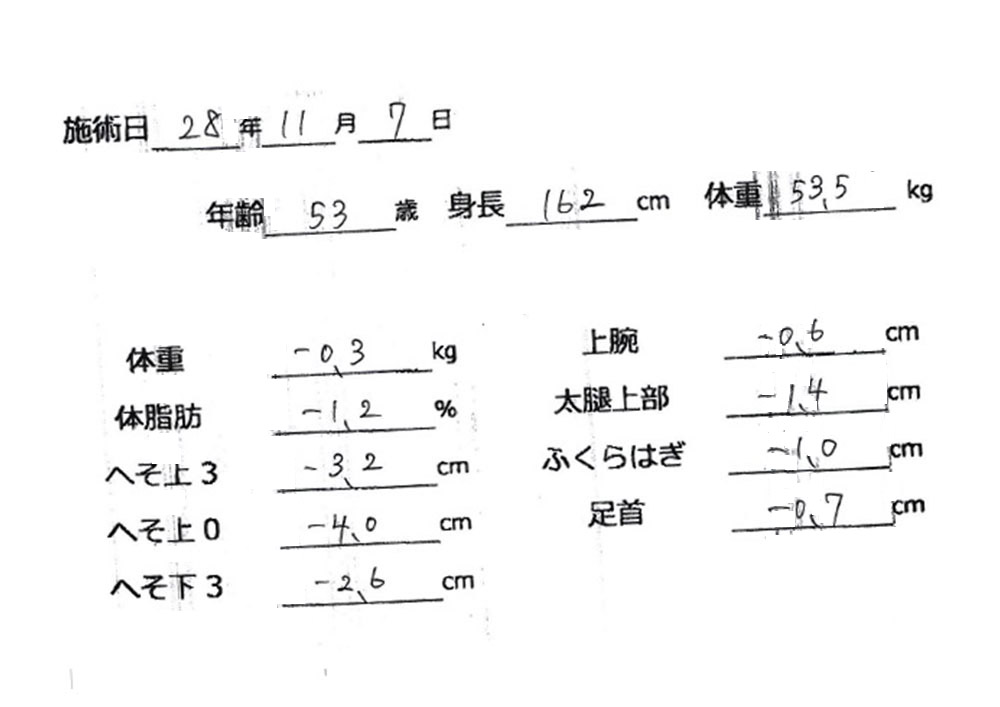 施術日 28 年 11 月 7 日
年齢 53 歳 身長 162 cm 体重 53.5 kg
体重 -0.3 kg
体脂肪 -1.2 %
へそ上3 -3.2 cm
へそ上0 -4.0 cm
へそ下3 -2.6 cm
上腕 -0.6 cm
太腿上部 -1.4 cm
ふくらはぎ -1.0 cm
足首 -0.7 cm